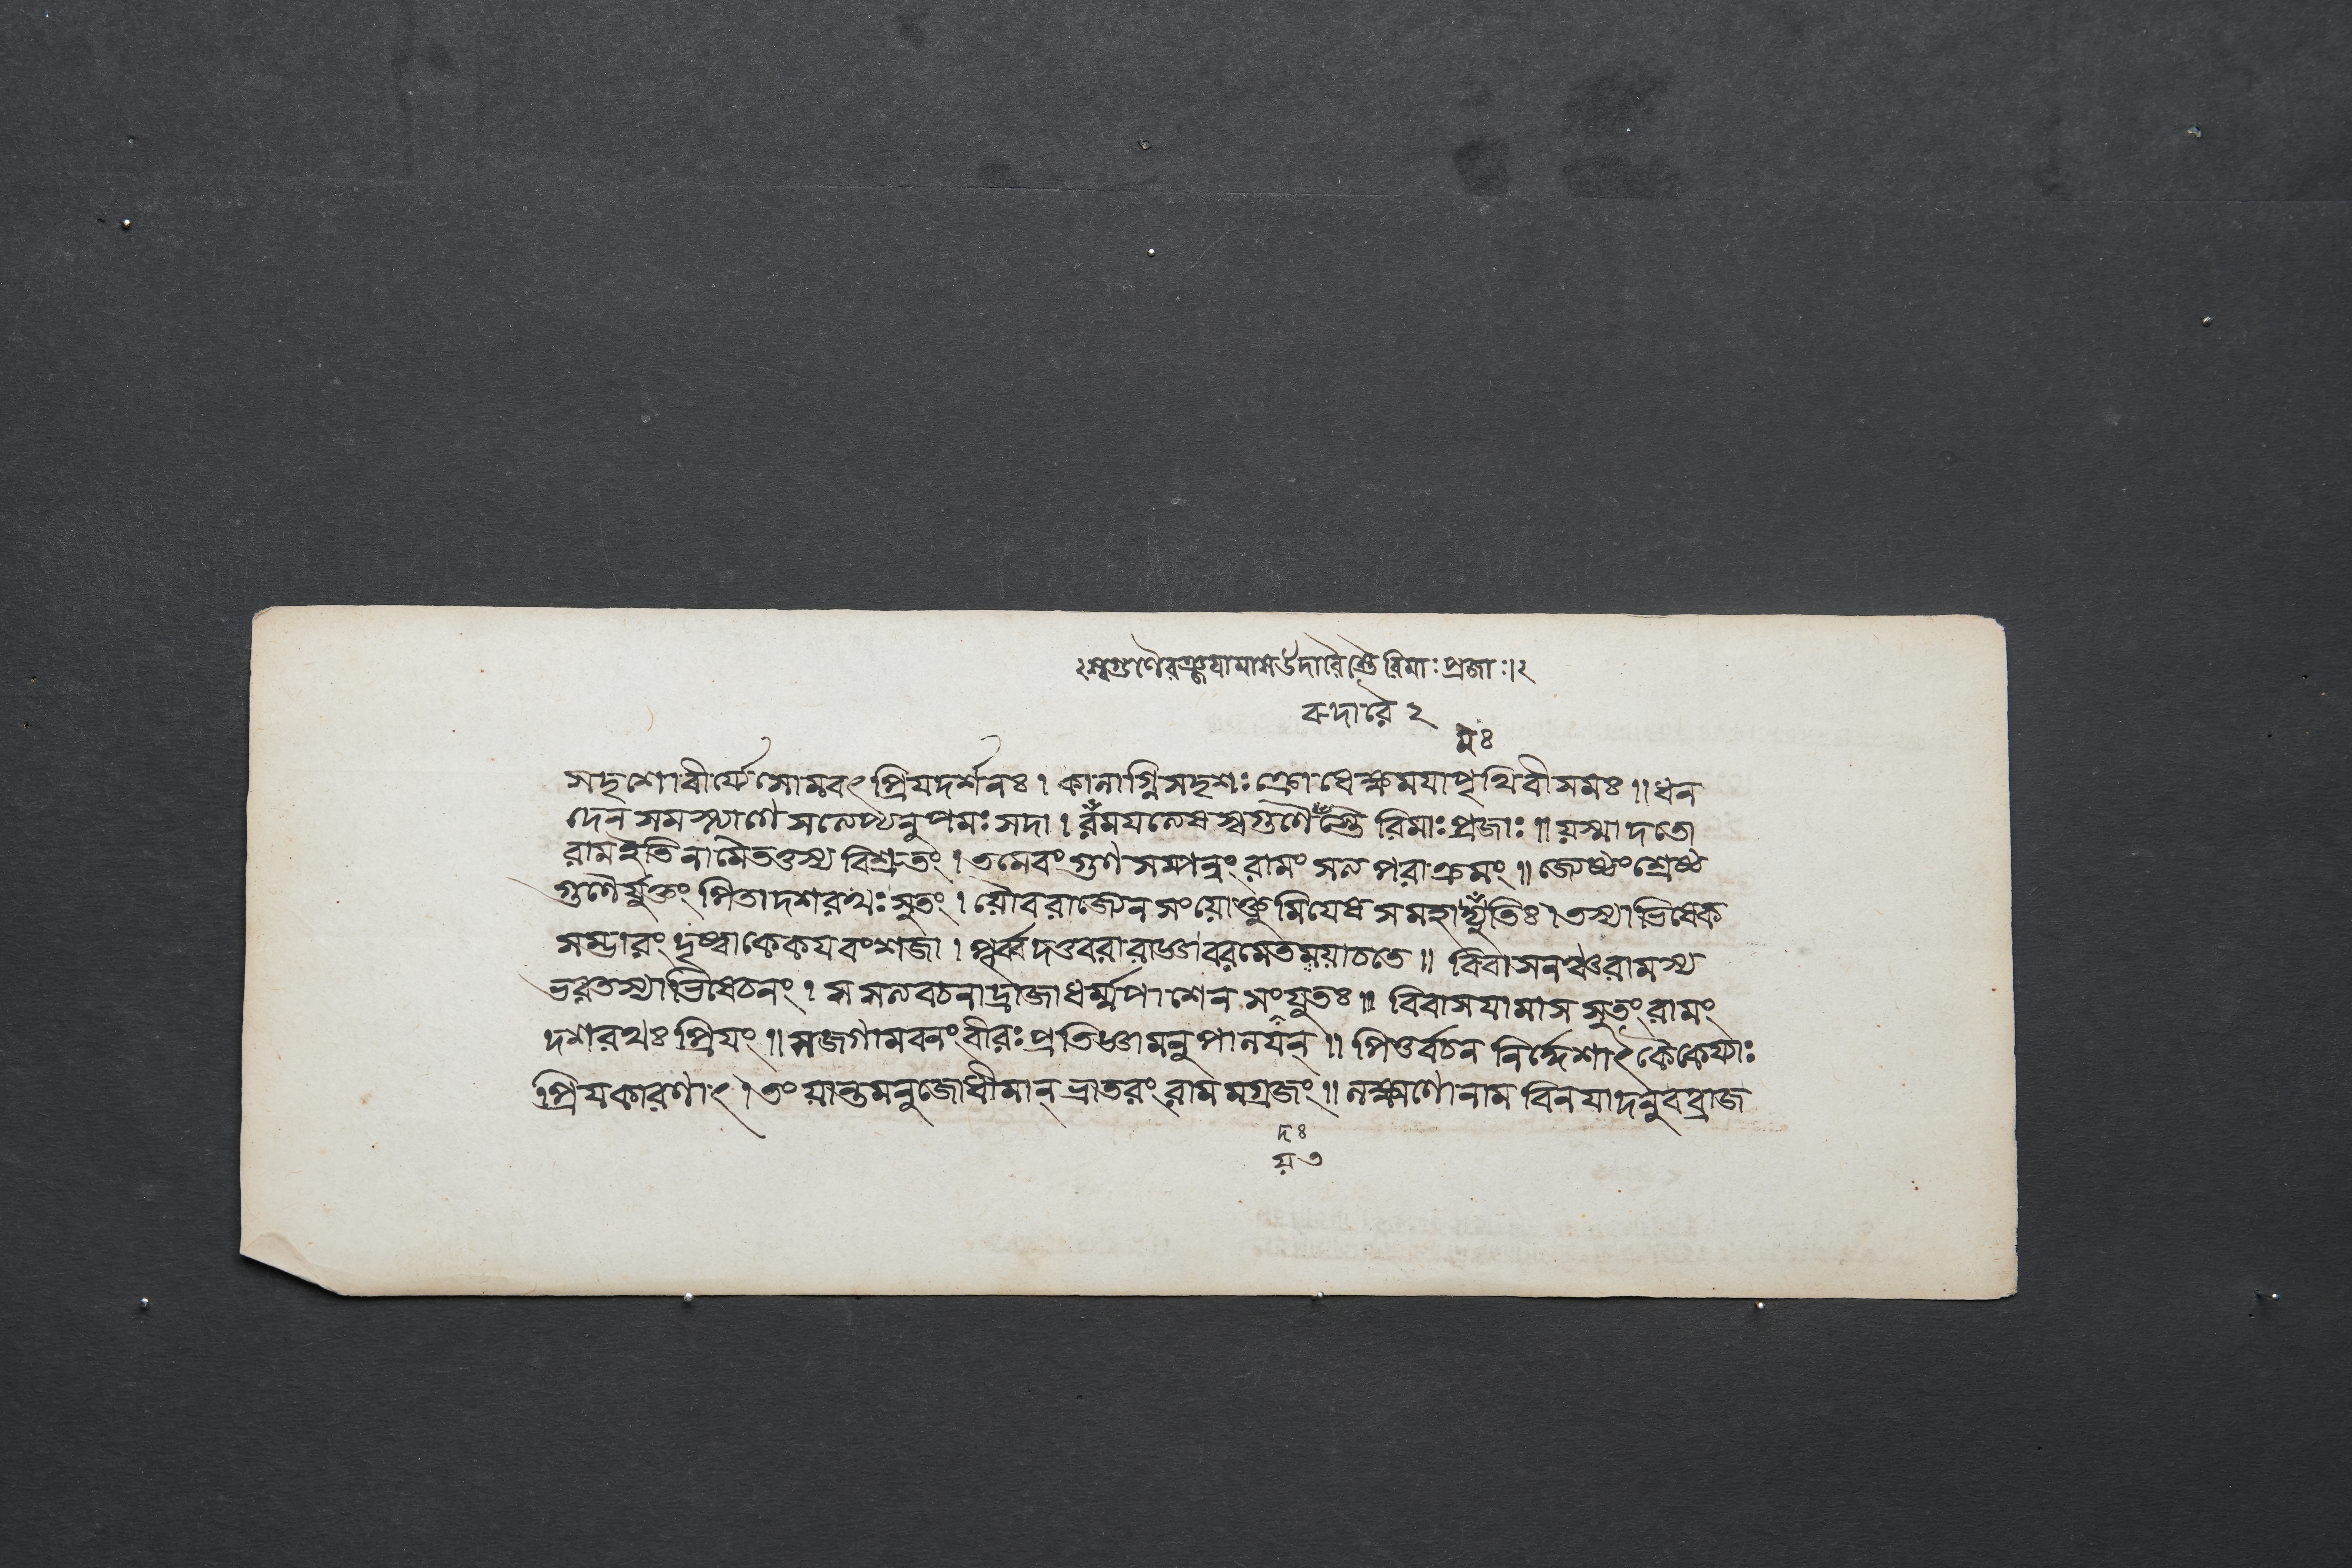 ২স্বগুণৈরঞ্জযামাসউদারৈস্তৈরিমাঃপ্রজাঃ।২
বদারৈ ২
মুঃ
সদৃশোবীর্য্যেসোমবৎ প্রিযদর্শনঃ। কালাগ্নিসদৃশঃ ক্রোধেক্ষমযাপৃথিবীসমঃ॥ ধন
দেন সমস্ত্যাগে সত্যেপ্যনুপমঃ সদা। রময়ত্যেষস্বগুণৈস্তৈরিমাঃপ্রজাঃ॥ যস্মাদতো
রামইতিনামৈতত্তস্য বিশ্রুতং। তমেবং গুণসম্পন্নং রামং সত্যপরাক্রমং॥ জ্যেষ্ঠংশ্রেষ্ঠ
গুণৈর্যুক্তং পিতাদশরথঃসুতং। যৌবরাজ্যেনসংযোক্তুমিযেষ সমহাদ্যুতিঃ। তস্যাভিষেক
সম্ভারং দৃষ্ট্বাকেকযবংশজা। পূর্ব্বদত্তবরারাজ্ঞাবরমেতমযাচতে॥ বিবাসনঞ্চরামস্য
ভরতস্যাভিষেচনং। স সত্যবচনাদ্রাজাধর্ম্মপাশেন সংযুতঃ॥ বিবাসযামাস সুতং রামং
দশরথঃ প্রিযং॥ সজগামবনং বীরঃ প্রতিজ্ঞামনুপালযন্॥ পিতুর্বচন নির্দ্দেশাৎ কৈকেয্যাঃ
প্রিযকারণাৎ। তং যান্তমনুজোধীমান্ ভ্রাতরং রামমগ্রজং॥ লক্ষ্মণোনাম বিনযাদনুবব্রাজ
দঃ
য়৩